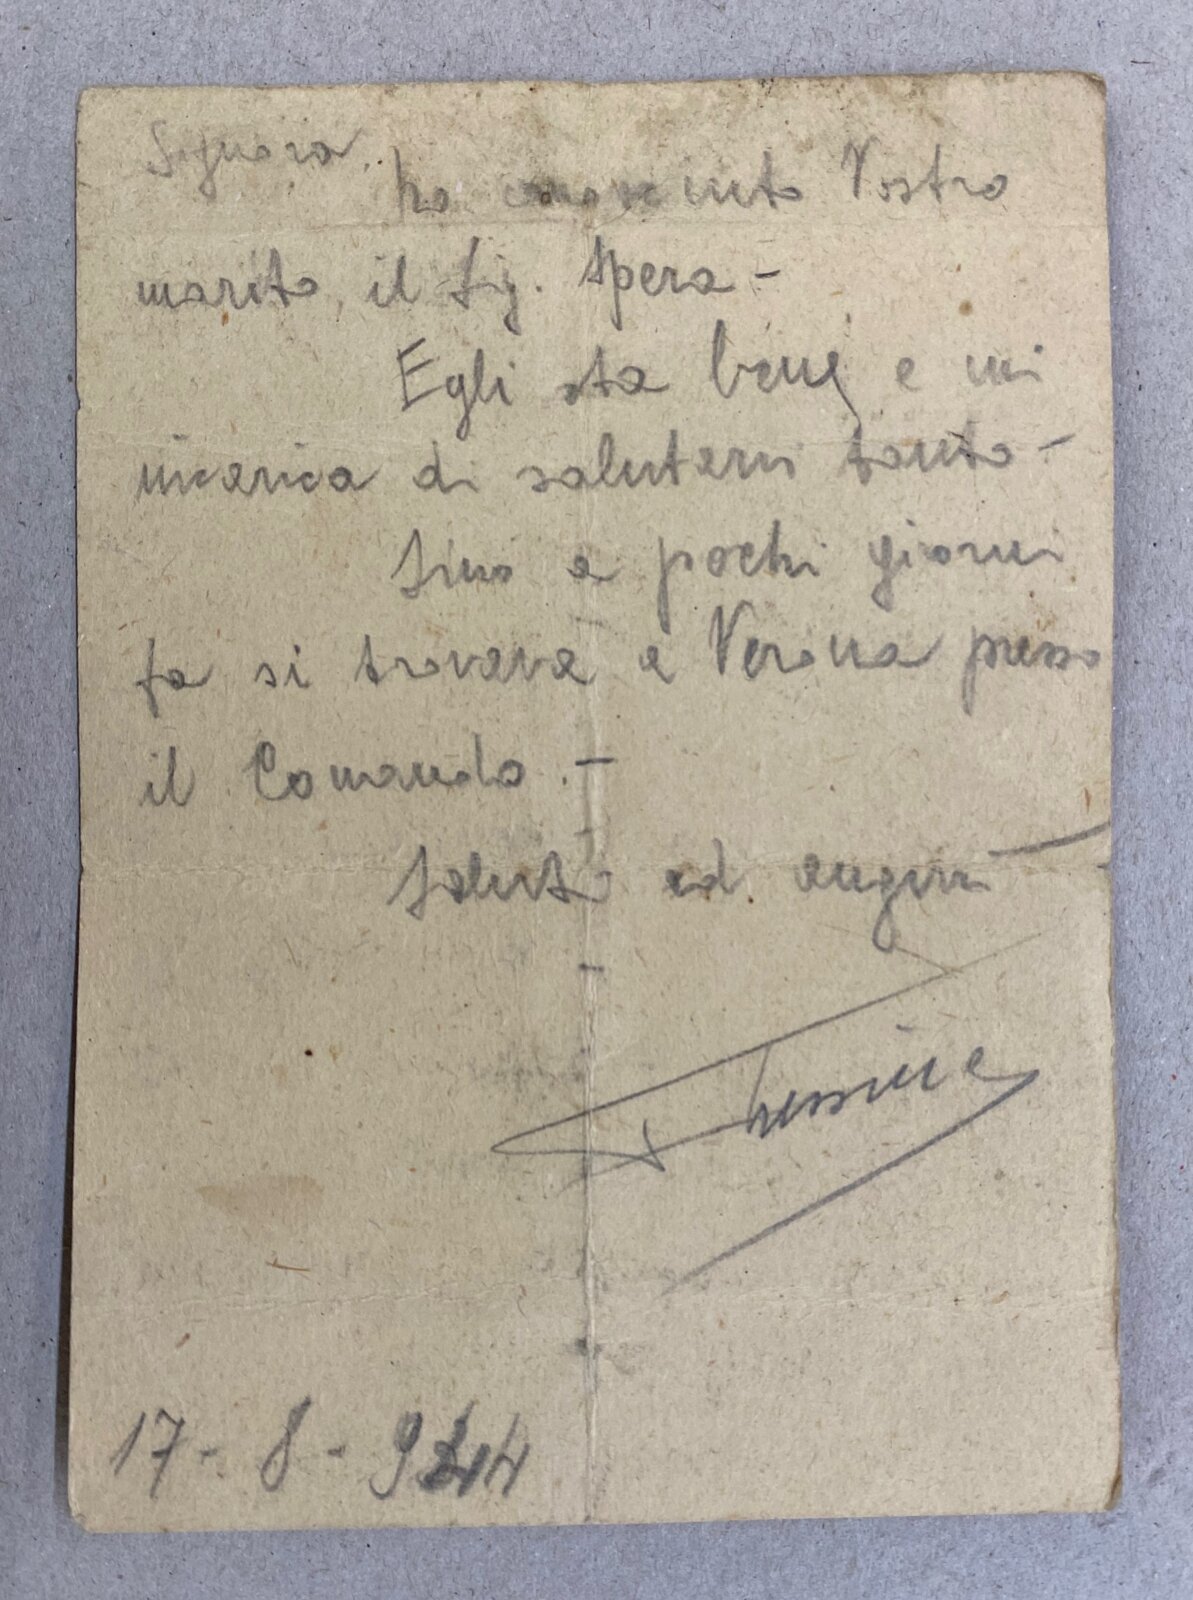 Signora,
ho conosciuto Vostro
marito, il Sig. Spera -
Egli sta bene e mi
incarica di salutarvi tanto -
Sino a pochi giorni
fa si trovava a Verona presso
il Comando . -
Saluti ed auguri
17 - 8 - 944